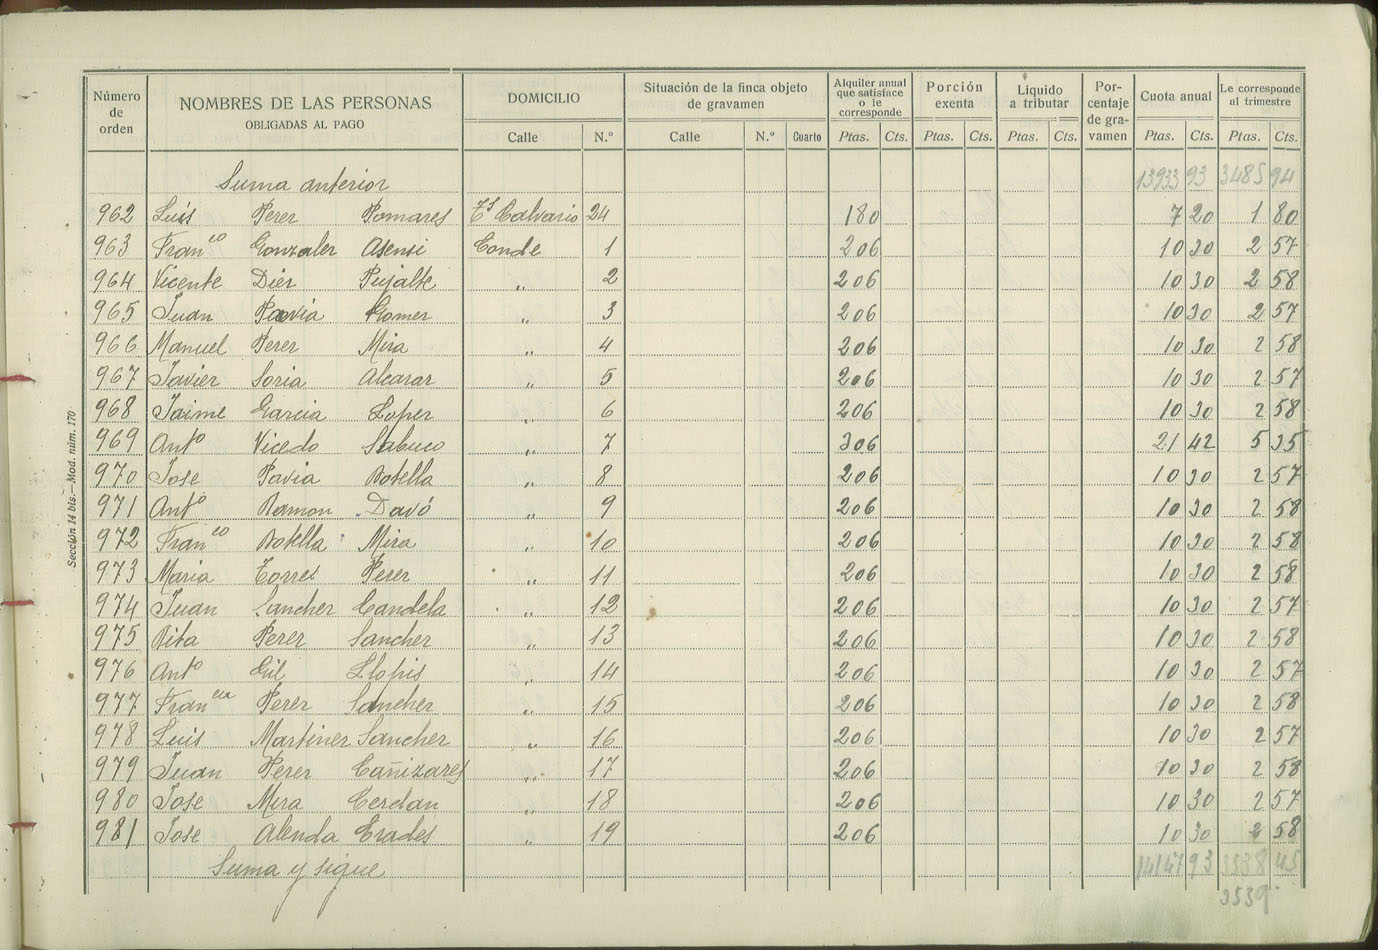 Número de orden | NOMBRES DE LAS PERSONAS OBLIGADAS AL PAGO | DOMICILIO | Situación de la finca objeto de gravamen | Alquiler anual que satisface o le corresponde | Porción exenta | Líquido a tributar | Por-centaje de gra-vamen | Cuota anual | Le corresponde al trimestre
Calle | N.º | Calle | N.º | Cuarto | Ptas. | Cts. | Ptas. | Cts. | Ptas. | Cts. | Ptas. | Cts. | Ptas. | Cts.
Suma anterior 13933 93 3485 94
962 Luis Perez Pomares Calvario 24 180 7 20 1 80
963 Franco Gonzalez Asensi Conde 1 206 10 30 2 57
964 Vicente Diez Pujalte " 2 206 10 30 2 58
965 Juan Pavia Gomez " 3 206 10 30 2 57
966 Manuel Perez Mira " 4 206 10 30 2 58
967 Javier Soria Alcazar " 5 206 10 30 2 57
968 Jaime Garcia Lopez " 6 206 10 30 2 58
969 Anto Vicedo Sabuco " 7 306 21 42 5 35
970 Jose Pavia Botella " 8 206 10 30 2 57
971 Anto Ramon Davó " 9 206 10 30 2 58
972 Franco Botella Mira " 10 206 10 30 2 58
973 Maria Torres Perez " 11 206 10 30 2 58
974 Juan Sanchez Candela " 12 206 10 30 2 57
975 Rita Perez Sanchez " 13 206 10 30 2 58
976 Anto Gil Llopis " 14 206 10 30 2 57
977 Franca Perez Sanchez " 15 206 10 30 2 58
978 Luis Martinez Sanchez " 16 206 10 30 2 57
979 Juan Perez Cañizares " 17 206 10 30 2 58
980 Jose Mira Cerdan " 18 206 10 30 2 57
981 Jose Alenda Erades " 19 206 10 30 2 58
Suma y sigue 14147 93 3538 45
3539
Sección 14 bis.—Mod. núm. 170